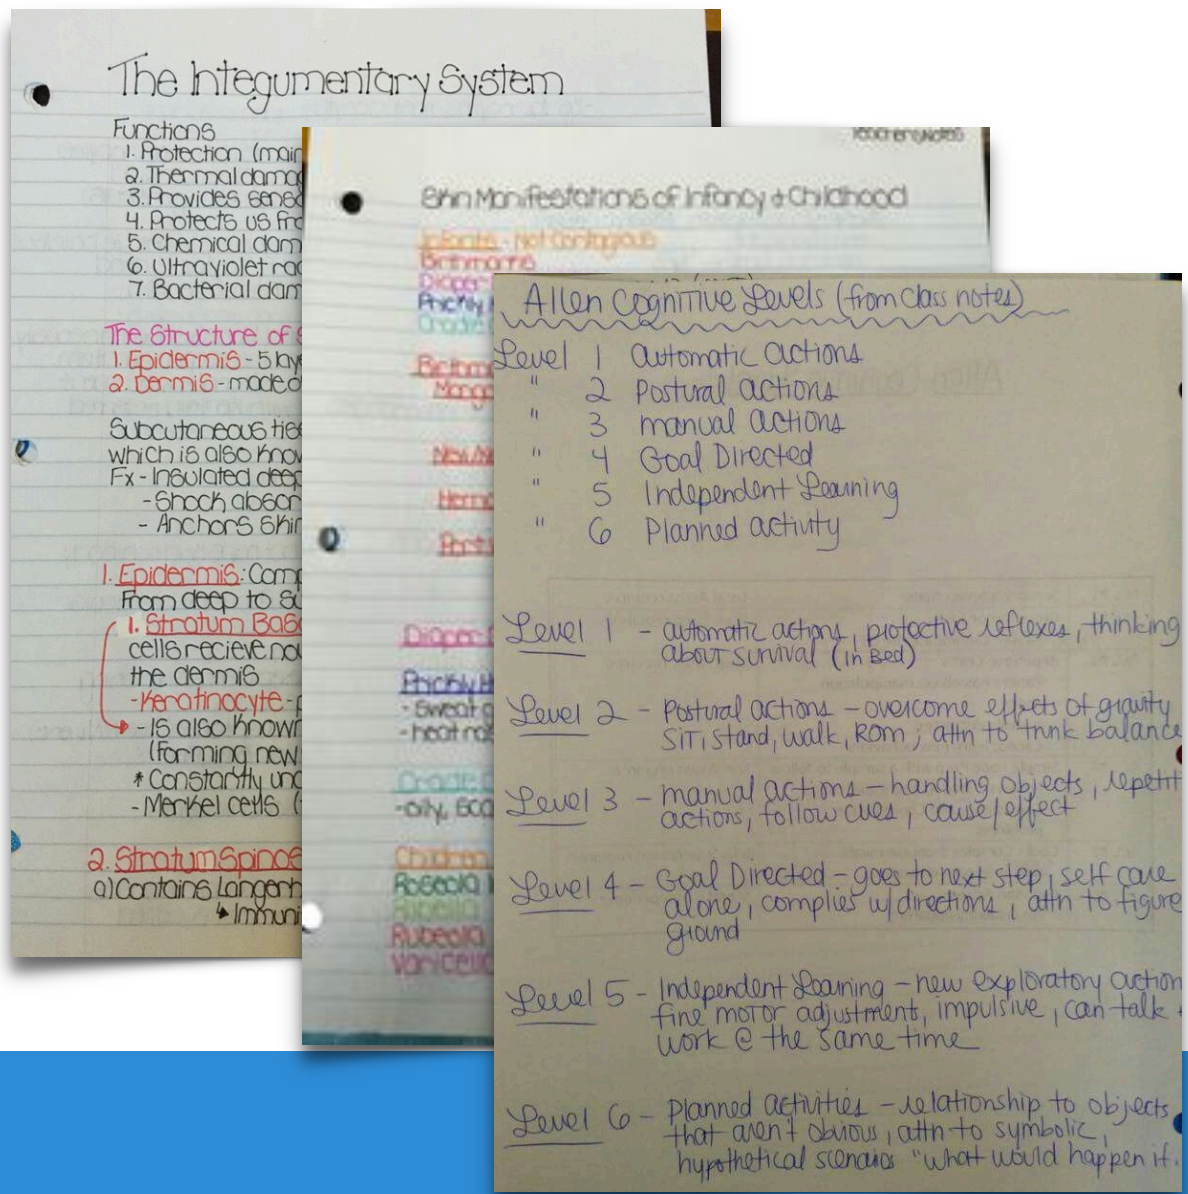 The Integumentary System
Functions
1. Protection (main
2. Thermal damag
3. Provides senso
4. Protects us fro
5. Chemical dam
6. Ultraviolet rad
7. Bacterial dam
The Structure of S
1. Epidermis - 5 lay
2. Dermis - made o
Subcutaneous tiss
which is also know
Fx - Insulated deep
- Shock absor
- Anchors skin
1. Epidermis: Comp
From deep to su
1. Stratum Bas
cells recieve nou
the dermis
- Keratinocyte - p
- Is also known
(forming new
* Constantly und
- Merkel cells (
2. Stratum Spinos
a) Contains Langerh
↳ Immuni
Teachers Notes
Skin Manifestations of Infancy & Childhood
Infants - Not Contagious
Birthmarks
Diaper
Prickly H
Cradle C
Birthma
Mongo
Hema
Port
Diaper
Prickly H
- sweat g
- heat ras
Cradle C
- oily, sca
Children
Roseola
Rubella
Rubeola
Varicella
Allen Cognitive Levels (from class notes)
Level 1 automatic actions
" 2 Postural actions
" 3 manual actions
" 4 Goal Directed
" 5 Independent Learning
" 6 Planned activity
Level 1 - automatic actions, protective reflexes, thinking
about survival (in Bed)
Level 2 - Postural actions - overcome effects of gravity
SiT, stand, walk, ROM; attn to trunk balance
Level 3 - manual actions - handling objects, repetit
actions, follow cues, cause/effect
Level 4 - Goal Directed - goes to next step, self care
alone, complies w/directions, attn to figure
ground
Level 5 - Independent Learning - new exploratory action
fine motor adjustment, impulsive, can talk +
work @ the same time
Level 6 - Planned activities - relationship to objects
that aren't obvious, attn to symbolic,
hypothetical scenarios "what would happen if.